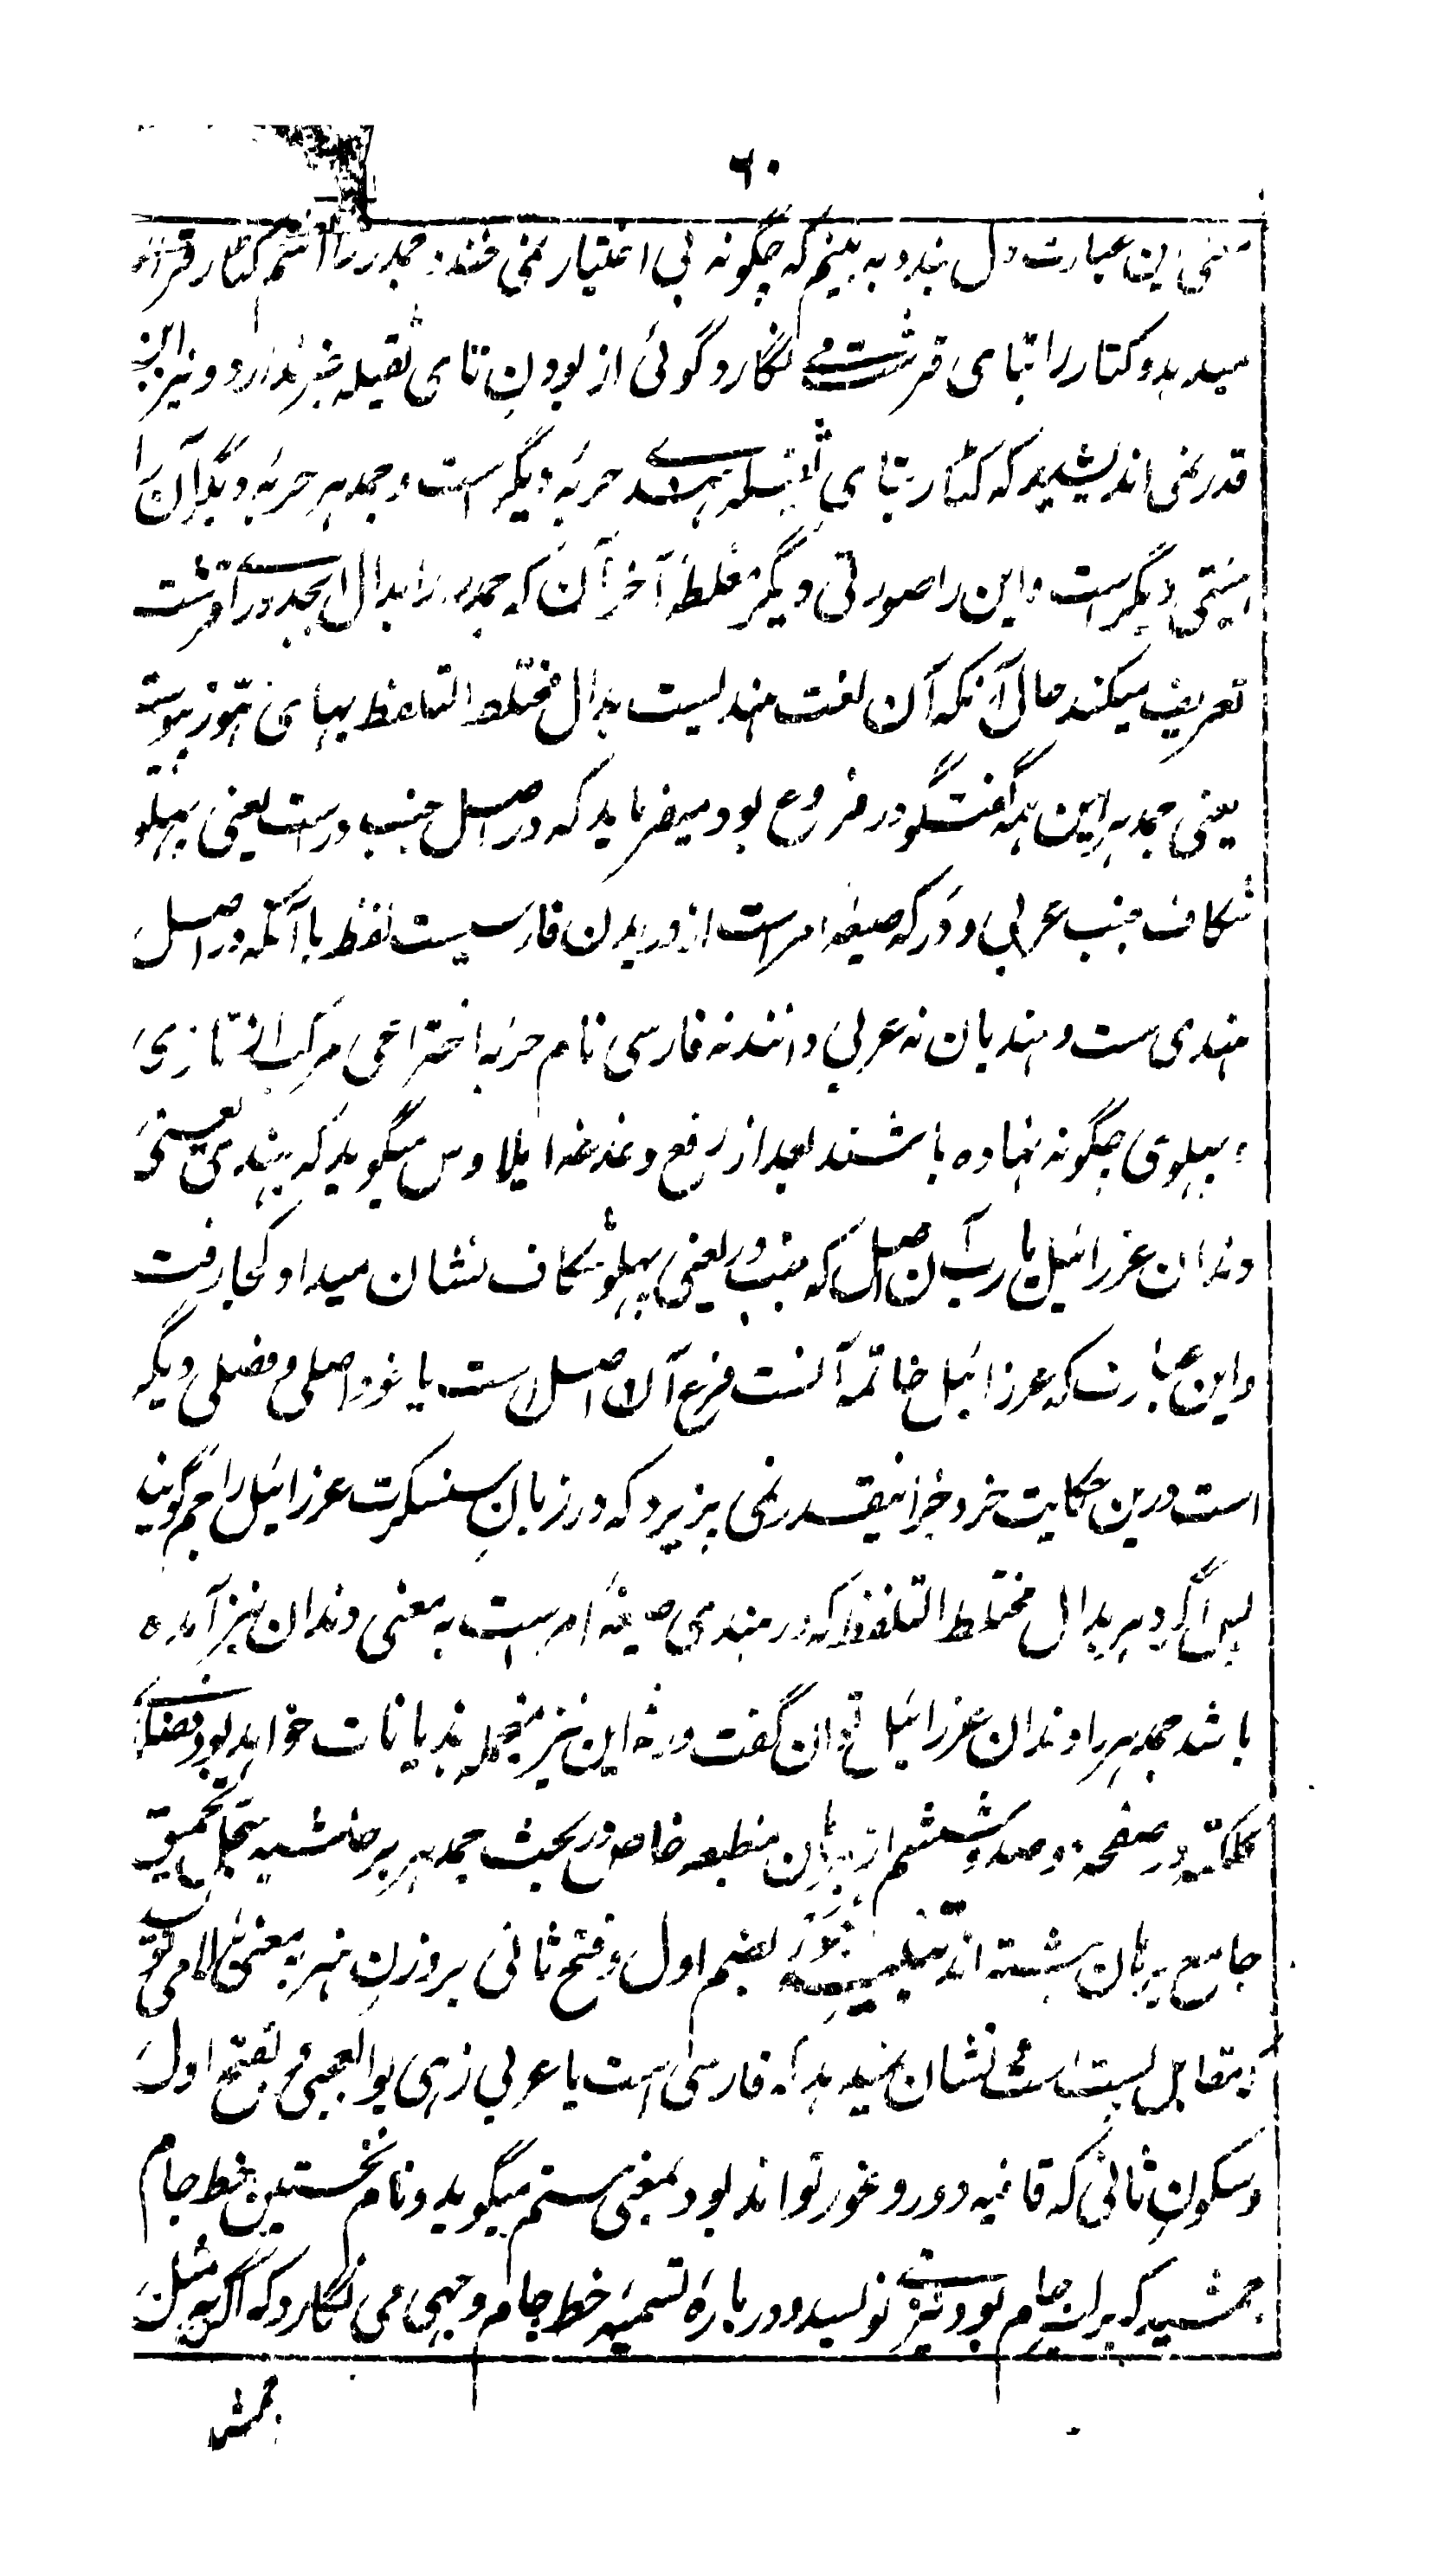 ۶۰
معنی این عبارت دل بندد به بینم که چگونه بی اختیار نمی خندد جمدر را اسم کتار قرار
میدهد و کتار را بتای قرشت می نگارد گوئی از بودن تای ثقیله خبر ندارد و نیز این
قدر نمی اندیشد که کتار بتای ثقیله هندی حربۀ دیگر است و جمدهر حربۀ دیگر آن را
هیئتی دیگر است و این را صورتی دیگر غلطۀ آخر آن که جمدر را بدال ابجد و رای قرشت
تعریف میکند حال آنکه آن لغت هندیست بدال مختلط التلفظ بهای هوز پیوسته
یعنی جمدهر این همه گفتگو در فروع بود میفرماید که در اصل جنب درست یعنی پهلو
شکاف جنب عربی و در که صیغۀ امرست از دریدن فارسیست لفظ با آنکه در اصل
هندی ست و هندیان نه عربی دانند نه فارسی نام حربۀ اختراعی مرکب از تازی
و پهلوی چگونه نهاده باشند بعد از رفع دغدغه ایلاوس میگوید که بهندی یعنی
دندان عزرائیل یا رب آن اصل که جنب در یعنی پهلو شکاف نشان میداد کجا رفت
و این عبارت که عزرائیل خاتمه آنست فرع آن اصل است یا خود اصلی و فصلی دیگر
است درین حکایت خرد جز اینقدر نمی پزیرد که در زبان سنسکرت عزرائیل را جم گویند
پس اگر دهر بدال مختلط التلفظ که در هندی صیغۀ امرست به معنی دندان نیز آمده
باشد جمدهر را دندان عزرائیل توان گفت ورنه این نیز منجمله هذیانات خواهد بود فضلای
کلکته در صفحه دوصد و ششم از برهان منطبعه خاص در بحث جمدهر بر حاشیه تجهیل و تحمیق
جامع برهان نوشته اند تنبیه جور بضم اول و فتح ثانی بروزن هنر به معنی بالا می نویسد
که مقابل پست است نشان نمیدهد که فارسی است یا عربی زهی بوالعجبی و بفتح اول
و سکون ثانی که قافیه دور و غور تواند بود بمعنی ستم میگوید و نام نخستین خط جام
جمشید که بر لب جام بود نیز می نویسد و در بارۀ تسمیه خط جام وجهی می نگارد که اگر به مثل
جمش